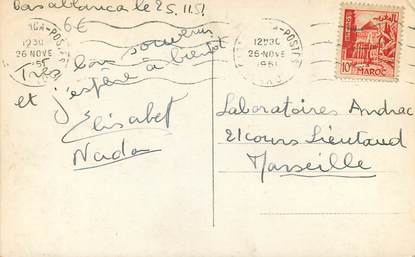 Casablanca le 25.11.51
6€
Très bon souvenir
et j'espère à bientôt
Elisabet
Nadan
CA-POSTE
12H30
26 NOVE
1951
12H30
26 NOVE
1951
POSTES
10F
MAROC
Laboratoires Andrac
21 cours Lieutaud
Marseille